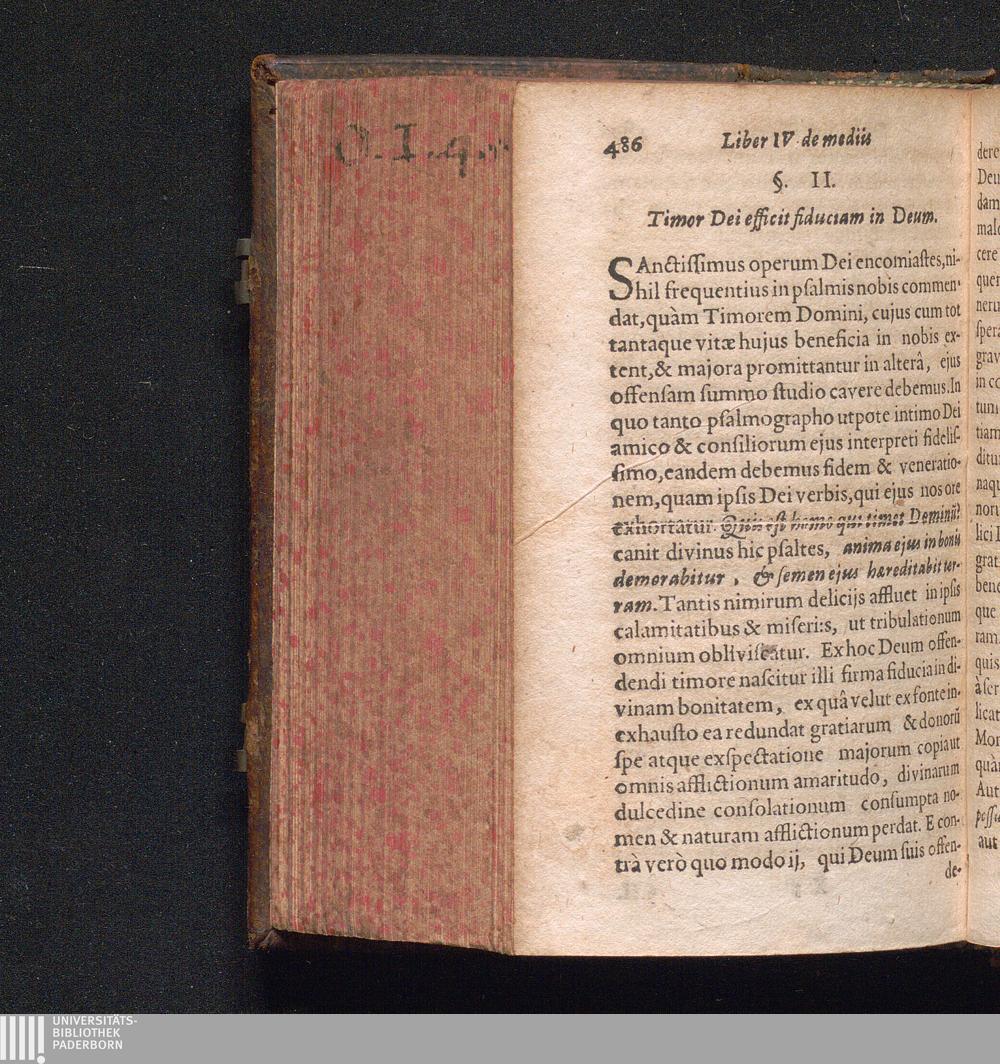 486 Liber IV de mediis
§. II.
Timor Dei efficit fiduciam in Deum.
SAnctiſſimus operum Dei encomiaſtes, ni-
hil frequentius in pſalmis nobis commen-
dat, quàm Timorem Domini, cujus cum tot
tantaque vitæ hujus beneficia in nobis ex-
tent, & majora promittantur in alterâ, ejus
offenſam ſummo ſtudio cavere debemus. In
quo tanto pſalmographo utpote intimo Dei
amico & conſiliorum ejus interpreti fideliſ-
ſimo, eandem debemus fidem & veneratio-
nem, quam ipſis Dei verbis, qui ejus nos ore
exhortatur. Quis eſt homo qui timet Dominũ?
canit divinus hic pſaltes, anima ejus in bonis
demorabitur, & ſemen ejus hæreditabit ter-
ram. Tantis nimirum delicijs affluet in ipſis
calamitatibus & miſeri:s, ut tribulationum
omnium obliviſcatur. Ex hoc Deum offen-
dendi timore naſcitur illi firma fiducia in di-
vinam bonitatem, ex quâ velut ex fonte in-
exhauſto ea redundat gratiarum & donorũ
ſpe atque exſpectatione majorum copia ut
omnis afflictionum amaritudo, divinarum
dulcedine conſolationum conſumpta no-
men & naturam afflictionum perdat. E con-
trà verò quo modo ij, qui Deum ſuis offen-
de-
dere
Deu
dam
malo
cere
quer
neru
ſpera
grav
in co
tum
tiam
ditu
naqu
noru
lici I
grat
bene
que
ram.
quis
à ſer
licat
Mor
quàn
Aut
poſſu
aut
UNIVERSITÄTS-
BIBLIOTHEK
PADERBORN